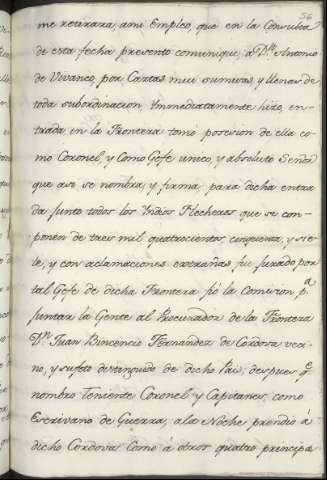 56
me retirara, ami Empleo, que en la Consulta
de esta fecha presento comunique, a Dn. Antonio
de Vivanco, por Cartas mui sumisas y llenas de
toda subordinacion, Ynmediatamente hizo, en-
trada en la Frontera tomó posesion de ella co-
mo Coronel, y Como Gefe unico, y absoluto Señor
que asi se nombra, y firma, para dicha entra
da junto todos los Yndios Flecheros que se com-
ponen de tres mil, quatrocientos cinquenta, y sie-
te, y con aclamaciones extrañas fue jurado por
tal Gefe de dicha Frontera fió la Comision pa.
juntar la Gente al Procurador de la Frontera
Dn. Juan Bincencio Fernandez de Cordova veci-
no, y sujeto destinguido de dicho Pais, despues qe.
nombro Teniente Coronel y Capitanes, como
Escrivano de Guerra, a la Noche prendio á
dicho Cordova Como á otros quatro principa